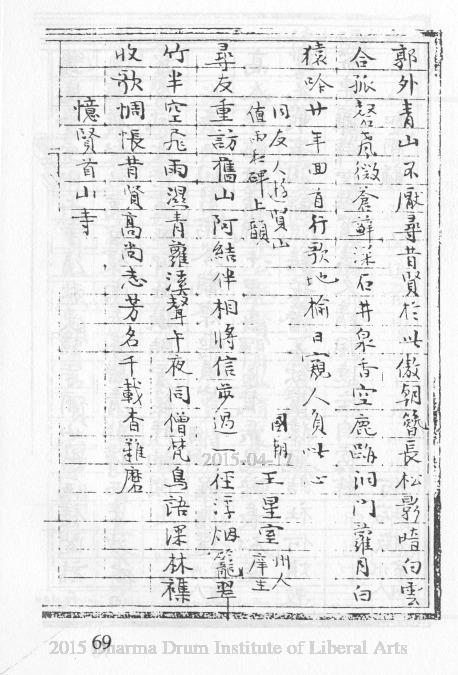 郭外青山不厭尋昔賢於此傲朝簪長松影暗白雲
合孤磬聲微蒼蘚深石井泉香空鹿跡洞門蘿月白
猿吟廿年回首行歌地榆日窺人負此心
同友人遊賢山
值雨和碑上韻
國朝王星室州人庠生
尋友重訪舊山阿結伴相將信步過一徑浮烟籠翠
竹半空飛雨濕青蘿溪聲午夜同僧梵鳥語深林襍
牧歌惆悵昔賢高尚志芳名千載杳難磨
憶賢首山寺
2015-04-17
69
2015 Dharma Drum Institute of Liberal Arts